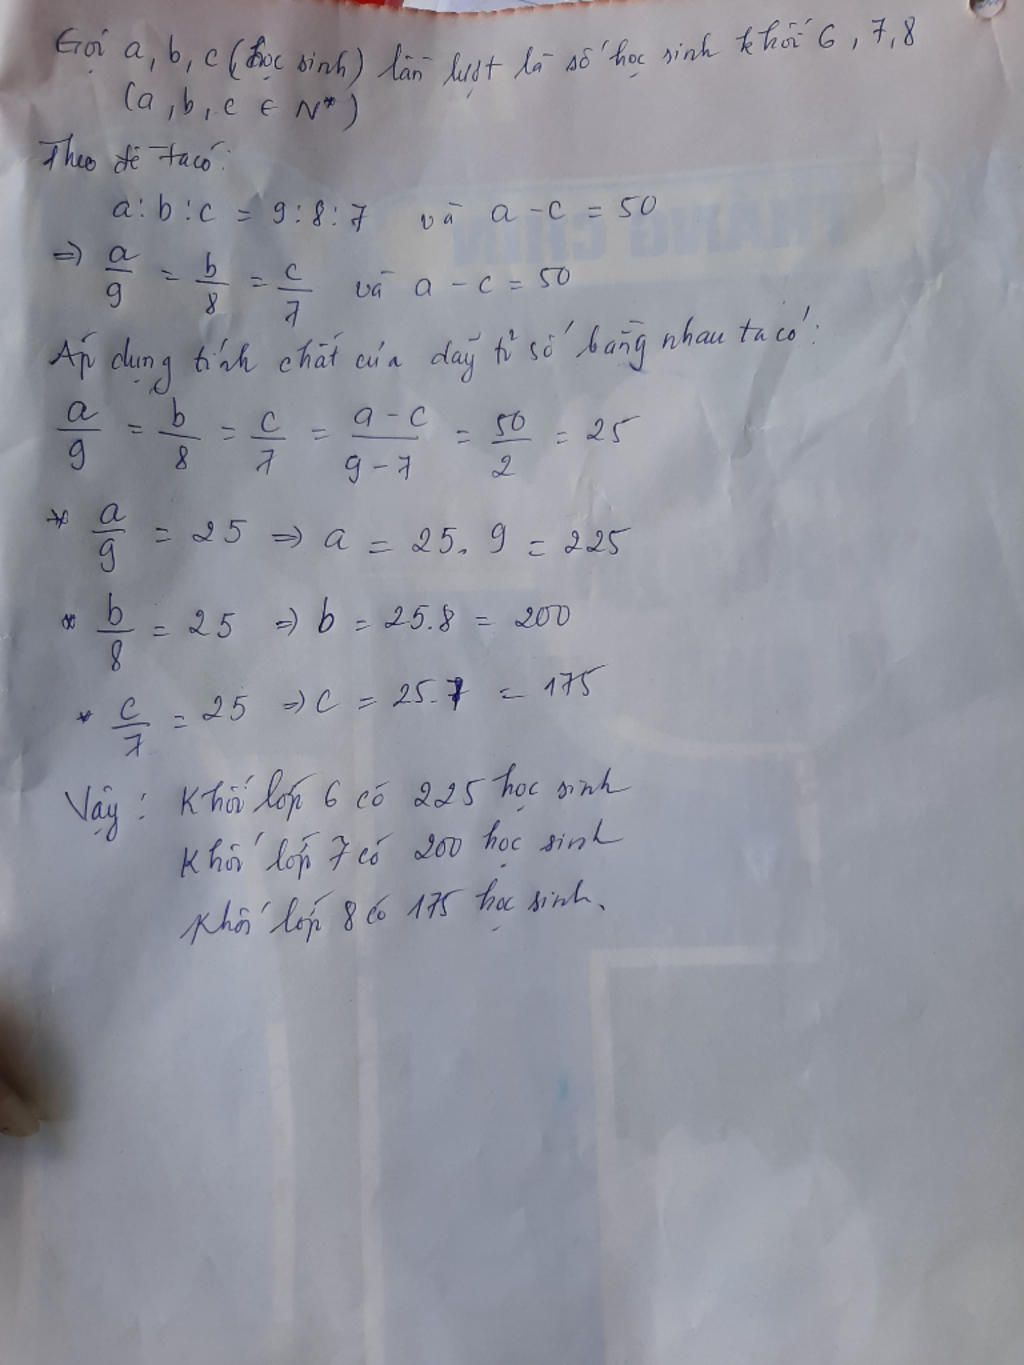 Gọi a, b, c (học sinh) lần lượt là số học sinh khối 6, 7, 8
(a, b, c ∈ N*)
Theo đề ta có:
a : b : c = 9 : 8 : 7 và a - c = 50
⇒ a/9 = b/8 = c/7 và a - c = 50
Áp dụng tính chất của dãy tỉ số bằng nhau ta có:
a/9 = b/8 = c/7 = (a - c)/(9 - 7) = 50/2 = 25
* a/9 = 25 ⇒ a = 25. 9 = 225
* b/8 = 25 ⇒ b = 25.8 = 200
* c/7 = 25 ⇒ c = 25.7 = 175
Vậy: Khối lớp 6 có 225 học sinh
Khối lớp 7 có 200 học sinh
Khối lớp 8 có 175 học sinh.
THÁNG CHÍN